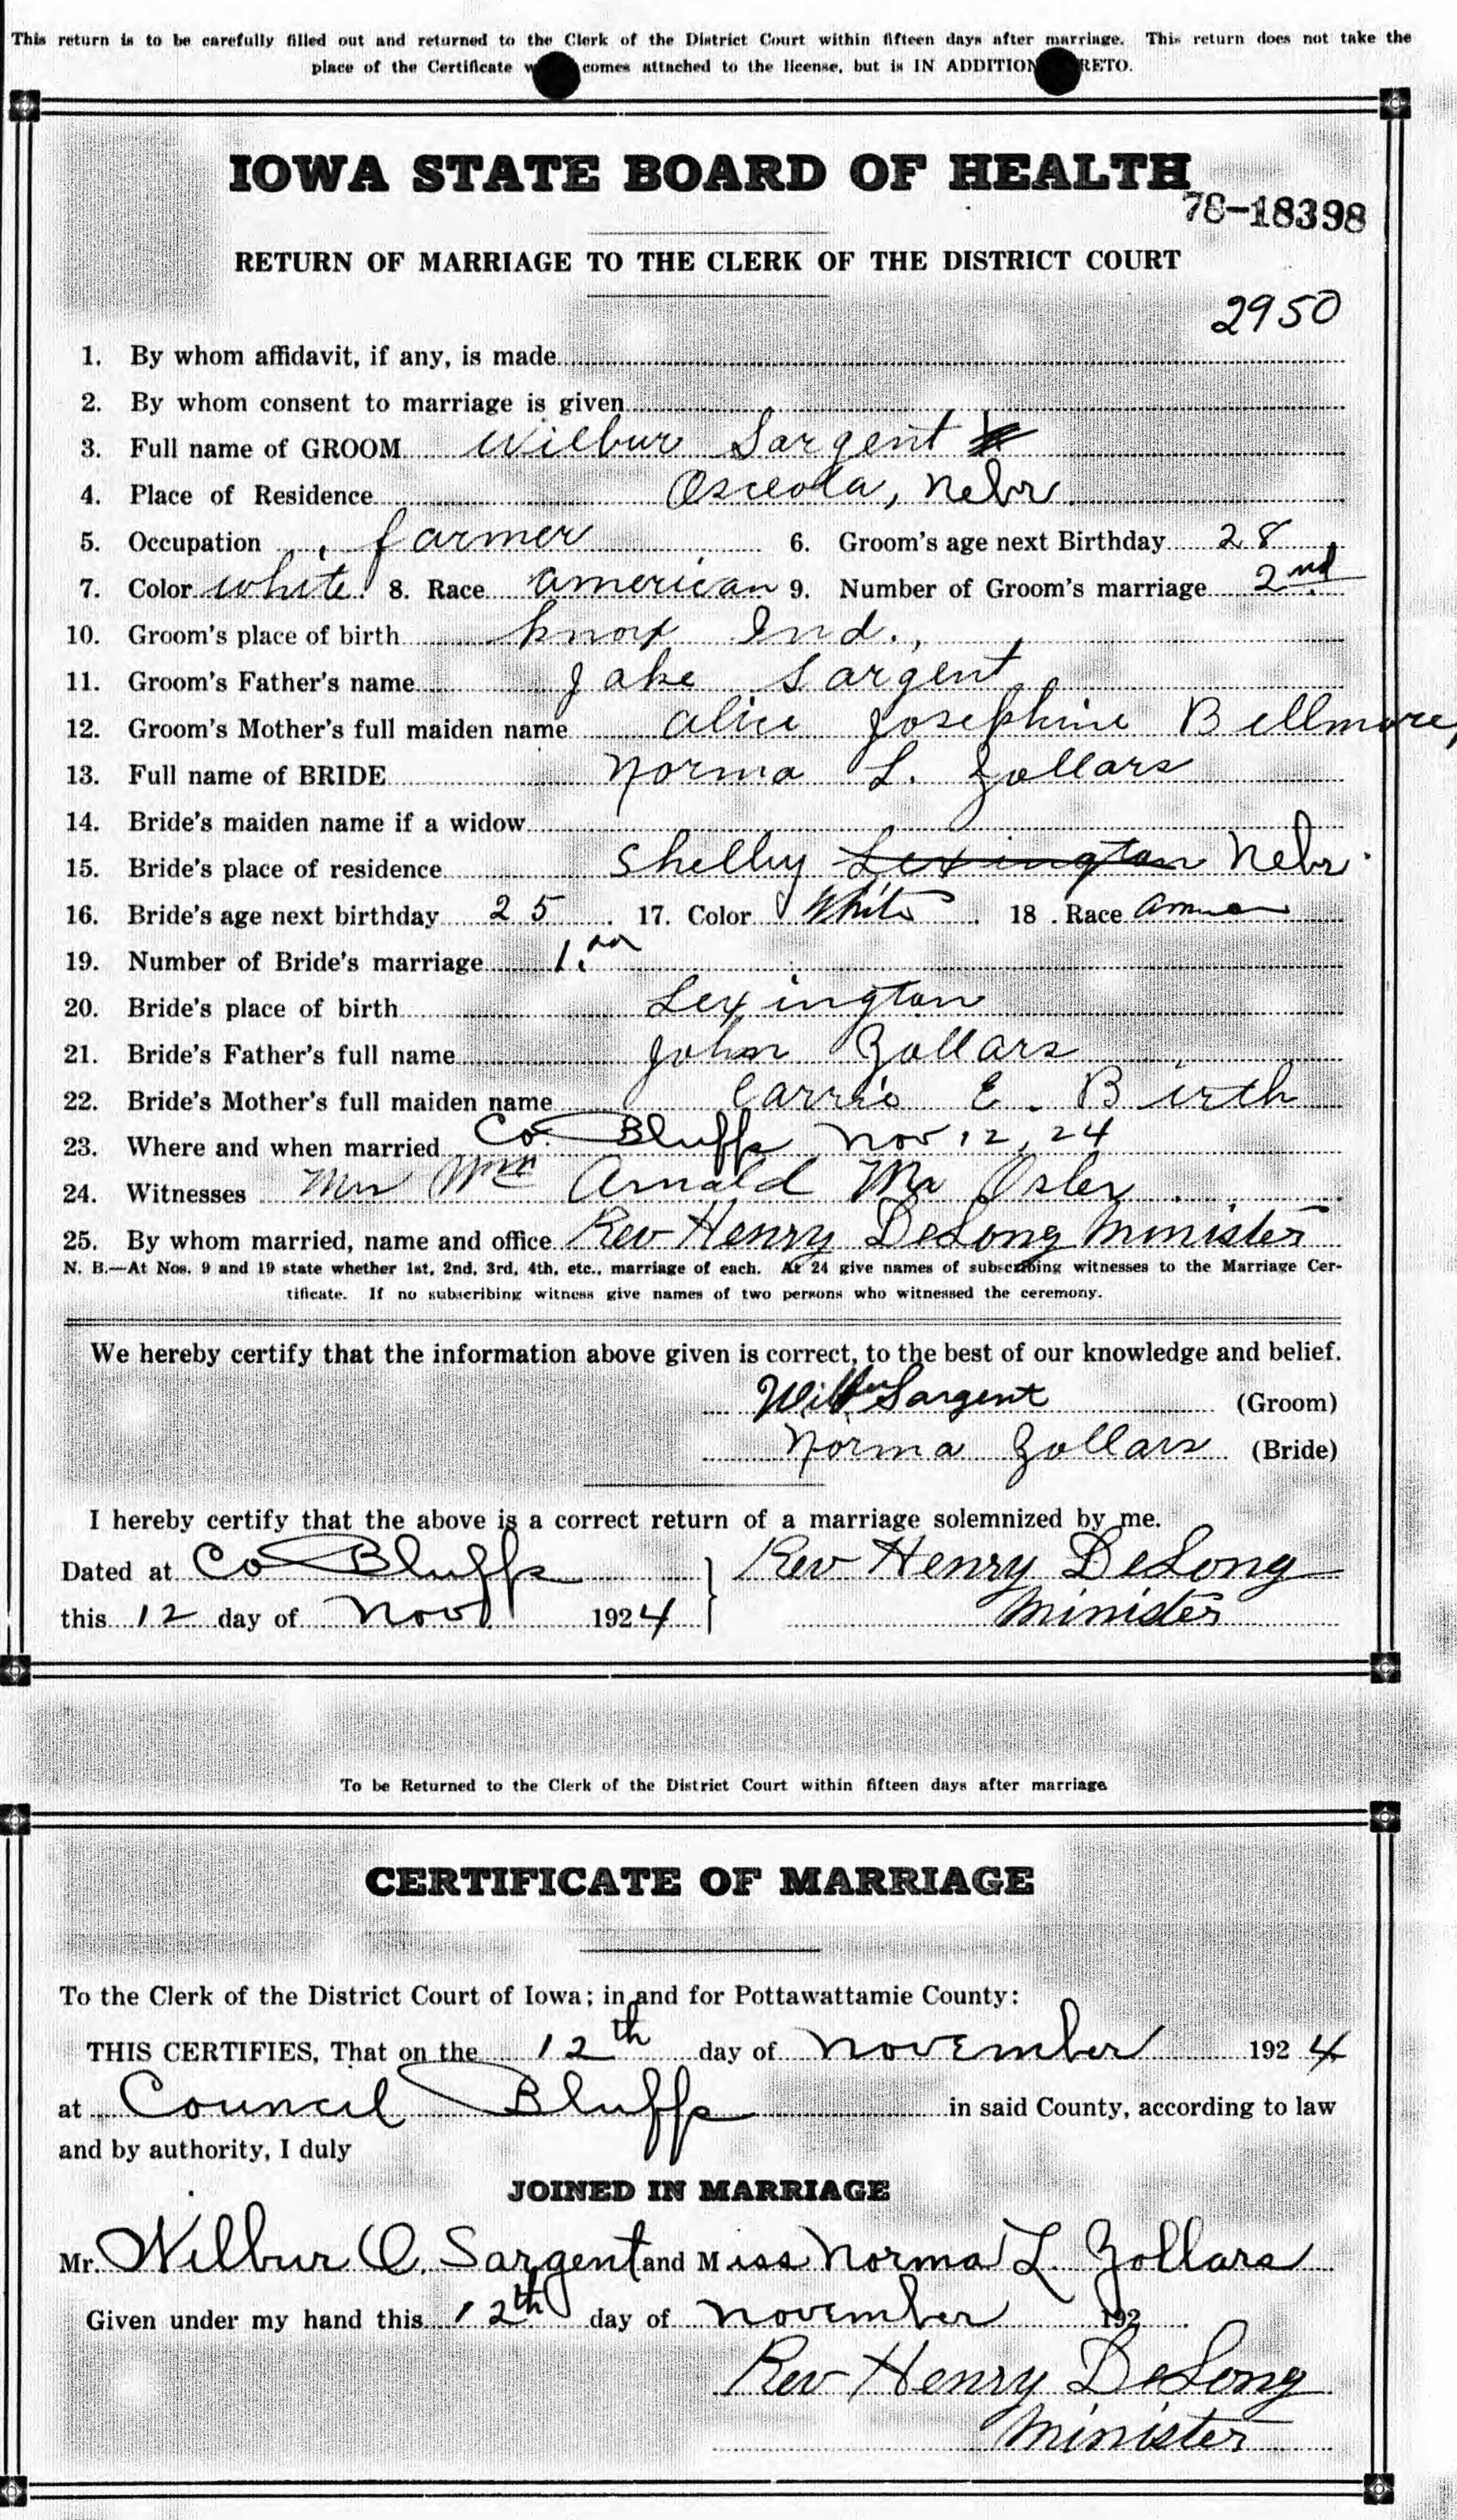 This return is to be carefully filled out and returned to the Clerk of the District Court within fifteen days after marriage. This return does not take the
place of the Certificate comes attached to the license, but is IN ADDITION RETO.
IOWA STATE BOARD OF HEALTH
78-18398
RETURN OF MARRIAGE TO THE CLERK OF THE DISTRICT COURT
2950
1. By whom affidavit, if any, is made
2. By whom consent to marriage is given
3. Full name of GROOM Wilbur Sargent
4. Place of Residence Osceola, Nebr.
5. Occupation farmer 6. Groom's age next Birthday 28
7. Color white 8. Race american 9. Number of Groom's marriage 2nd
10. Groom's place of birth Knox Ind.,
11. Groom's Father's name Jake Sargent
12. Groom's Mother's full maiden name Alice Josephine Bellmore,
13. Full name of BRIDE Norma L. Zollars
14. Bride's maiden name if a widow
15. Bride's place of residence Shelby Lexington Nebr.
16. Bride's age next birthday 25 17. Color White 18. Race
19. Number of Bride's marriage 1.
20. Bride's place of birth Lexington
21. Bride's Father's full name John Zollars
22. Bride's Mother's full maiden name Carrie E. Birth
23. Where and when married Co Bluffs Nov 12, 24
24. Witnesses Arnold Mr Osler
25. By whom married, name and office Rev Henry DeLong Minister
N. B.—At Nos. 9 and 19 state whether 1st, 2nd, 3rd, 4th, etc., marriage of each. At 24 give names of subscribing witnesses to the Marriage Cer-
tificate. If no subscribing witness give names of two persons who witnessed the ceremony.
We hereby certify that the information above given is correct, to the best of our knowledge and belief.
Wilbur Sargent (Groom)
Norma Zollars (Bride)
I hereby certify that the above is a correct return of a marriage solemnized by me.
Dated at Co Bluffs Rev Henry DeLong
this 12 day of Nov 1924 Minister
To be Returned to the Clerk of the District Court within fifteen days after marriage
CERTIFICATE OF MARRIAGE
To the Clerk of the District Court of Iowa; in and for Pottawattamie County:
THIS CERTIFIES, That on the 12th day of November 1924
at Council Bluffs in said County, according to law
and by authority, I duly
JOINED IN MARRIAGE
Mr. Wilbur O. Sargent and Miss Norma L. Zollars
Given under my hand this 12th day of November 192
Rev Henry DeLong
Minister